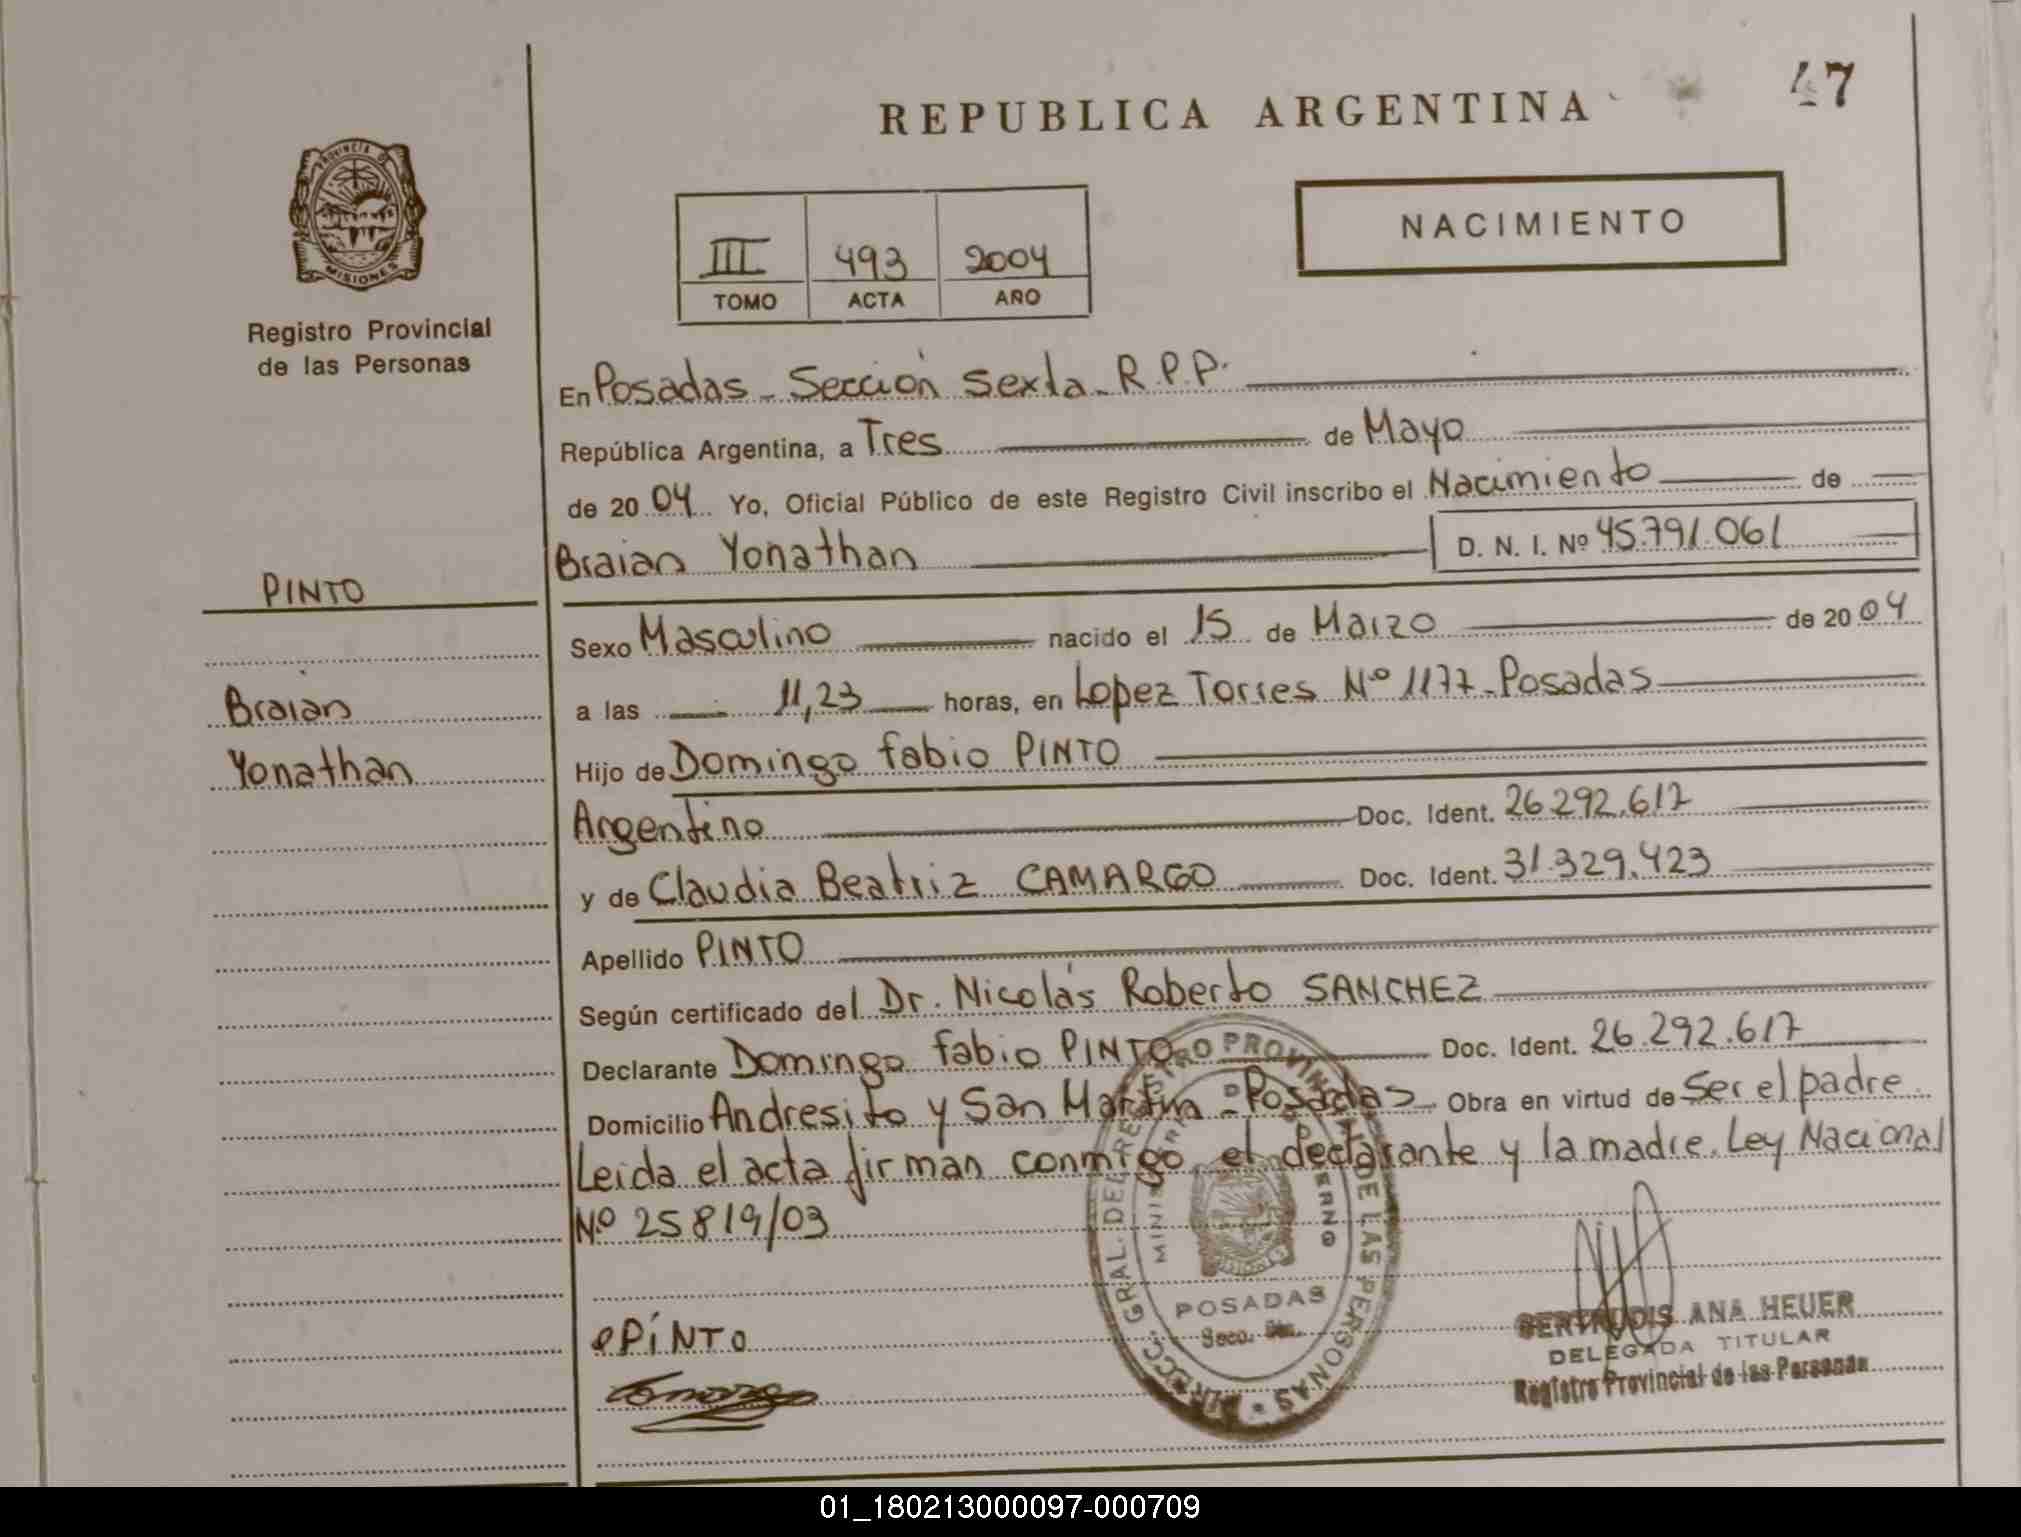 47
REPUBLICA ARGENTINA
PROVINCIA DE
MISIONES
NACIMIENTO
III 493 2004
TOMO ACTA AÑO
Registro Provincial
de las Personas
En Posadas - Sección Sexta - R.P.P.
República Argentina, a Tres de Mayo
de 2004 Yo, Oficial Público de este Registro Civil inscribo el Nacimiento de
Braian Yonathan D. N. I. Nº 45.791.061
PINTO
Sexo Masculino nacido el 15 de Marzo de 2004
Braian
a las 11,23 horas, en Lopez Torres Nº 1177 - Posadas
Yonathan
Hijo de Domingo fabio PINTO
Argentino Doc. Ident. 26.292.617
y de Claudia Beatriz CAMARGO Doc. Ident. 31.329.423
Apellido PINTO
Según certificado del Dr. Nicolás Roberto SANCHEZ
Declarante Domingo fabio PINTO Doc. Ident. 26.292.617
Domicilio Andresito y San Martin - Posadas Obra en virtud de Ser el padre
Leida el acta firman conmigo el declarante y la madre. Ley Nacional
Nº 25819/03
GRAL. DEL REGISTRO PROVINCIAL DE LAS PERSONAS
POSADAS
Secc.
PINTO
GERTRUDIS ANA HEUER
DELEGADA TITULAR
Registro Provincial de las Personas
01_180213000097-000709